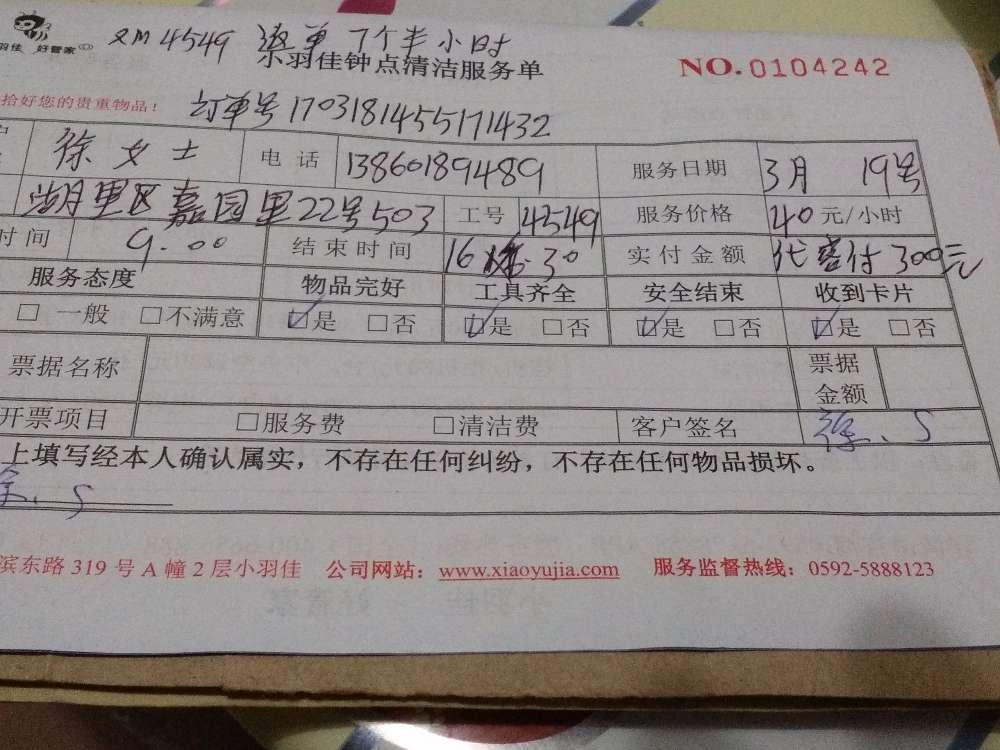 羽佳 好管家
XM 4549 派单 7个半小时
小羽佳钟点清洁服务单
NO.0104242
拾好您的贵重物品！ 订单号1703181455171432
徐女士 电话 13860189489 服务日期 3月 19号
湖里区嘉园里22号503 工号 4549 服务价格 40元/小时
时间 9.00 结束时间 16 30 实付金额 代客付300元
服务态度 物品完好 工具齐全 安全结束 收到卡片
□ 一般 □不满意 ☑是 □否 ☑是 □否 ☑是 □否 ☑是 □否
票据名称 票据金额
开票项目 □服务费 □清洁费 客户签名 徐.S
上填写经本人确认属实，不存在任何纠纷，不存在任何物品损坏。
徐.S
滨东路 319 号 A 幢 2 层小羽佳 公司网站：www.xiaoyujia.com 服务监督热线：0592-5888123